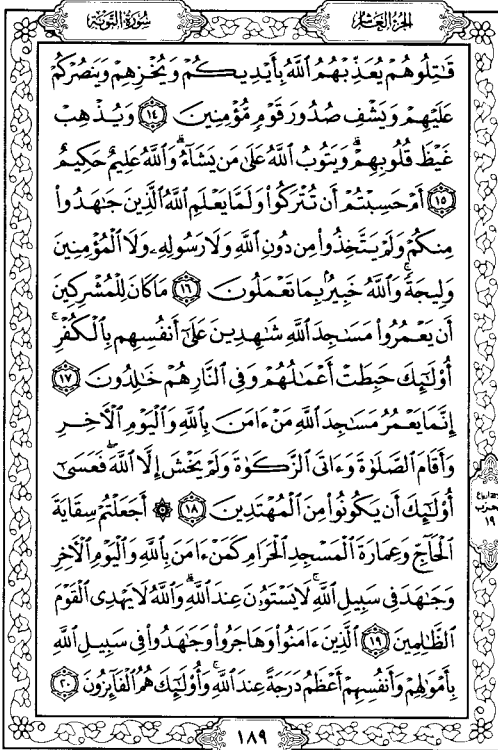 الجزء العاشر
سورة التوبة
قَٰتِلُوهُمْ يُعَذِّبْهُمُ ٱللَّهُ بِأَيْدِيكُمْ وَيُخْزِهِمْ وَيَنصُرْكُمْ
عَلَيْهِمْ وَيَشْفِ صُدُورَ قَوْمٍ مُّؤْمِنِينَ ١٤ وَيُذْهِبْ
غَيْظَ قُلُوبِهِمْ ۗ وَيَتُوبُ ٱللَّهُ عَلَىٰ مَن يَشَآءُ ۗ وَٱللَّهُ عَلِيمٌ حَكِيمٌ
١٥ أَمْ حَسِبْتُمْ أَن تُتْرَكُوا۟ وَلَمَّا يَعْلَمِ ٱللَّهُ ٱلَّذِينَ جَٰهَدُوا۟
مِنكُمْ وَلَمْ يَتَّخِذُوا۟ مِن دُونِ ٱللَّهِ وَلَا رَسُولِهِۦ وَلَا ٱلْمُؤْمِنِينَ
وَلِيجَةً ۚ وَٱللَّهُ خَبِيرٌۢ بِمَا تَعْمَلُونَ ١٦ مَا كَانَ لِلْمُشْرِكِينَ
أَن يَعْمُرُوا۟ مَسَٰجِدَ ٱللَّهِ شَٰهِدِينَ عَلَىٰٓ أَنفُسِهِم بِٱلْكُفْرِ ۚ
أُو۟لَٰٓئِكَ حَبِطَتْ أَعْمَٰلُهُمْ وَفِى ٱلنَّارِ هُمْ خَٰلِدُونَ ١٧
إِنَّمَا يَعْمُرُ مَسَٰجِدَ ٱللَّهِ مَنْ ءَامَنَ بِٱللَّهِ وَٱلْيَوْمِ ٱلْءَاخِرِ
وَأَقَامَ ٱلصَّلَوٰةَ وَءَاتَى ٱلزَّكَوٰةَ وَلَمْ يَخْشَ إِلَّا ٱللَّهَ ۖ فَعَسَىٰٓ
أُو۟لَٰٓئِكَ أَن يَكُونُوا۟ مِنَ ٱلْمُهْتَدِينَ ١٨ ۞ أَجَعَلْتُمْ سِقَايَةَ
ٱلْحَآجِّ وَعِمَارَةَ ٱلْمَسْجِدِ ٱلْحَرَامِ كَمَنْ ءَامَنَ بِٱللَّهِ وَٱلْيَوْمِ ٱلْءَاخِرِ
وَجَٰهَدَ فِى سَبِيلِ ٱللَّهِ ۚ لَا يَسْتَوُۥنَ عِندَ ٱللَّهِ ۗ وَٱللَّهُ لَا يَهْدِى ٱلْقَوْمَ
ٱلظَّٰلِمِينَ ١٩ ٱلَّذِينَ ءَامَنُوا۟ وَهَاجَرُوا۟ وَجَٰهَدُوا۟ فِى سَبِيلِ ٱللَّهِ
بِأَمْوَٰلِهِمْ وَأَنفُسِهِمْ أَعْظَمُ دَرَجَةً عِندَ ٱللَّهِ ۚ وَأُو۟لَٰٓئِكَ هُمُ ٱلْفَآئِزُونَ ٢٠
حزب
١٩
١٨٩